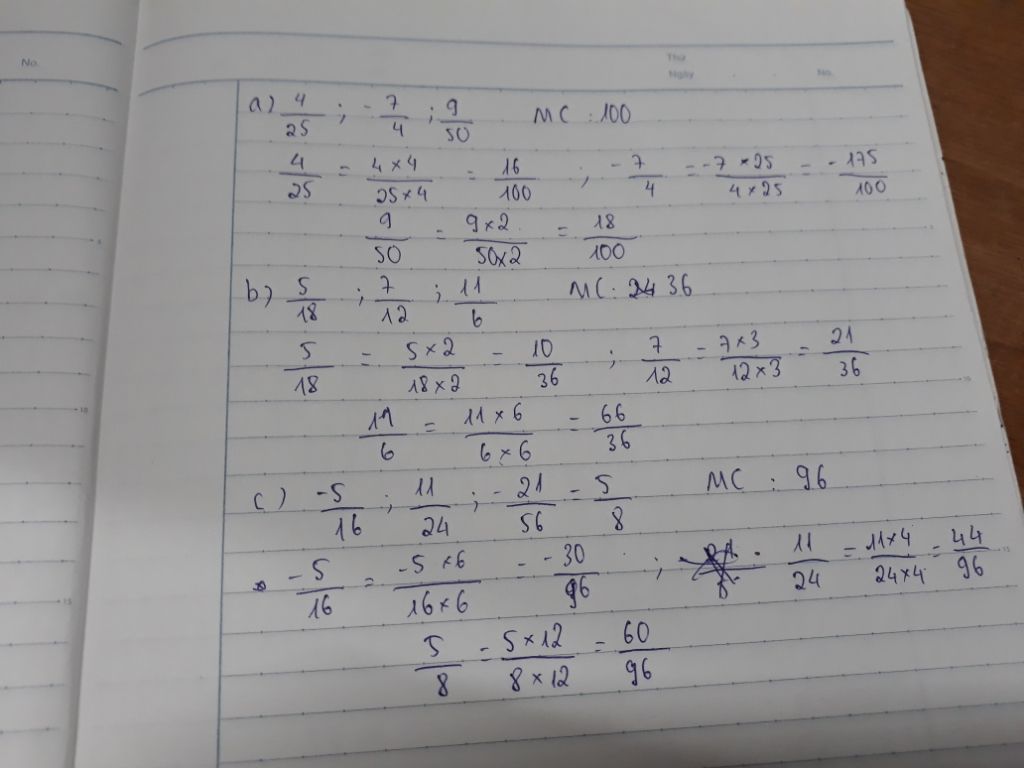 No.
Thứ
Ngày No.
a) 4/25 ; -7/4 ; 9/50 MC : 100
4/25 = 4×4/25×4 = 16/100 ; -7/4 = -7×25/4×25 = -175/100
9/50 = 9×2/50×2 = 18/100
b) 5/18 ; 7/12 ; 11/6 MC : 24 36
5/18 = 5×2/18×2 = 10/36 ; 7/12 = 7×3/12×3 = 21/36
11/6 = 11×6/6×6 = 66/36
c) -5/16 ; 11/24 ; -21/56 = 5/8 MC : 96
-5/16 = -5×6/16×6 = -30/96 ; 11/24 = 11×4/24×4 = 44/96
5/8 = 5×12/8×12 = 60/96